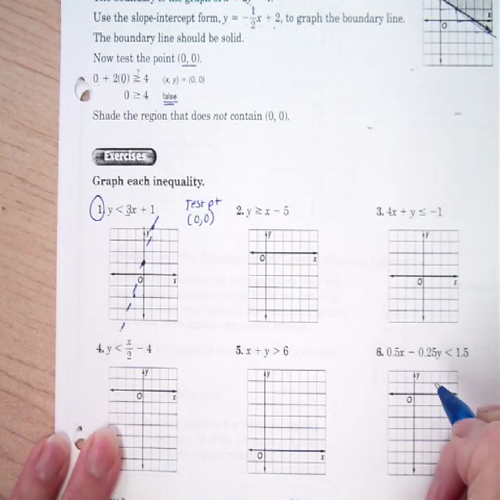 Use the slope-intercept form, y = -1/2x + 2, to graph the boundary line.
The boundary line should be solid.
Now test the point (0, 0).
0 + 2(0) ≥ 4 (x, y) = (0, 0)
0 ≥ 4 false
Shade the region that does not contain (0, 0).
Exercises
Graph each inequality.
1. y < 3x + 1
Test pt
(0,0)
2. y ≥ x - 5
3. 4x + y ≤ -1
y
O x
y
O x
y
O x
4. y < x/2 - 4
5. x + y > 6
6. 0.5x - 0.25y < 1.5
y
O x
y
O x
y
O